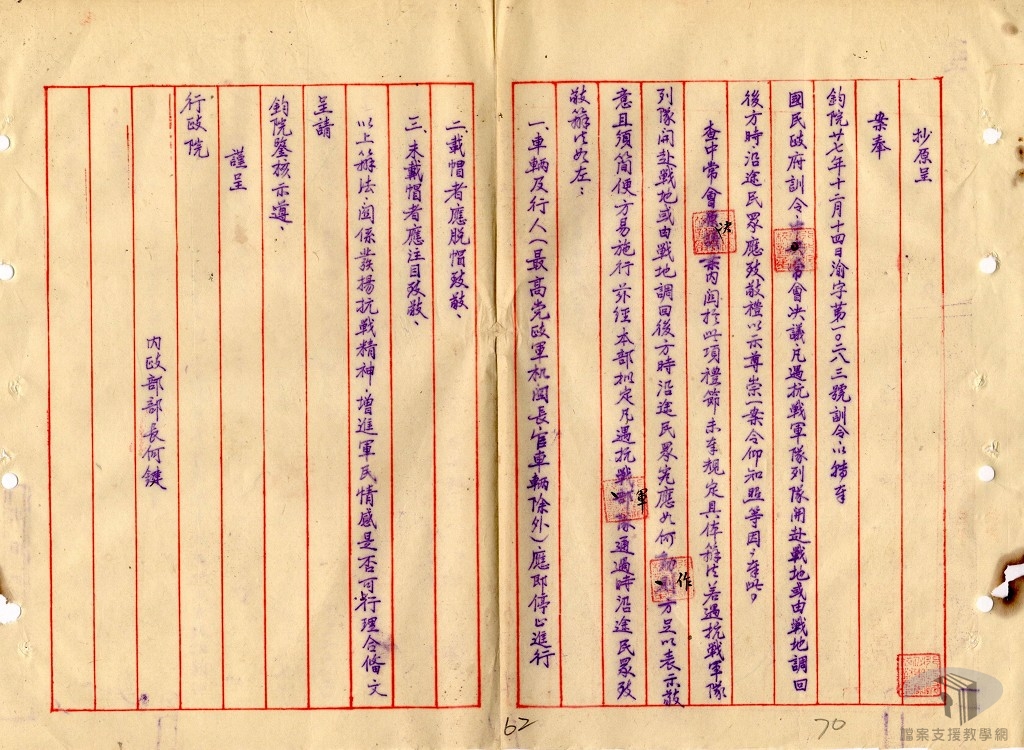 抄原呈
案奉
鈞院廿七年十二月十四日渝字第一〇二八三號訓令以轉奉
國民政府訓令中央常會決議凡遇抗戰軍隊列隊開赴戰地或由戰地調回
後方時沿途民眾應致敬禮以示尊崇一案令仰知照等因、奉此，
查中常會決議案內関於此項禮節未奉規定具体辦法若遇抗戰軍隊
列隊開赴戰地或由戰地調回後方時沿途民眾究應如何動作方足以表示敬
意且須簡便方易施行茲經本部擬定凡遇抗戰軍隊通過時沿途民眾致
敬辦法如左：
一、車輛及行人（最高党政軍机関長官車輛除外）應即停止進行
二、戴帽者應脱帽致敬、
三、未戴帽者應注目致敬、
以上辦法、関係發揚抗戰精神、增進軍民情感是否可行理合偹文
呈請
鈞院鑒核示遵、
謹呈
行政院
內政部部長何鍵
62
70
檔案支援教學網